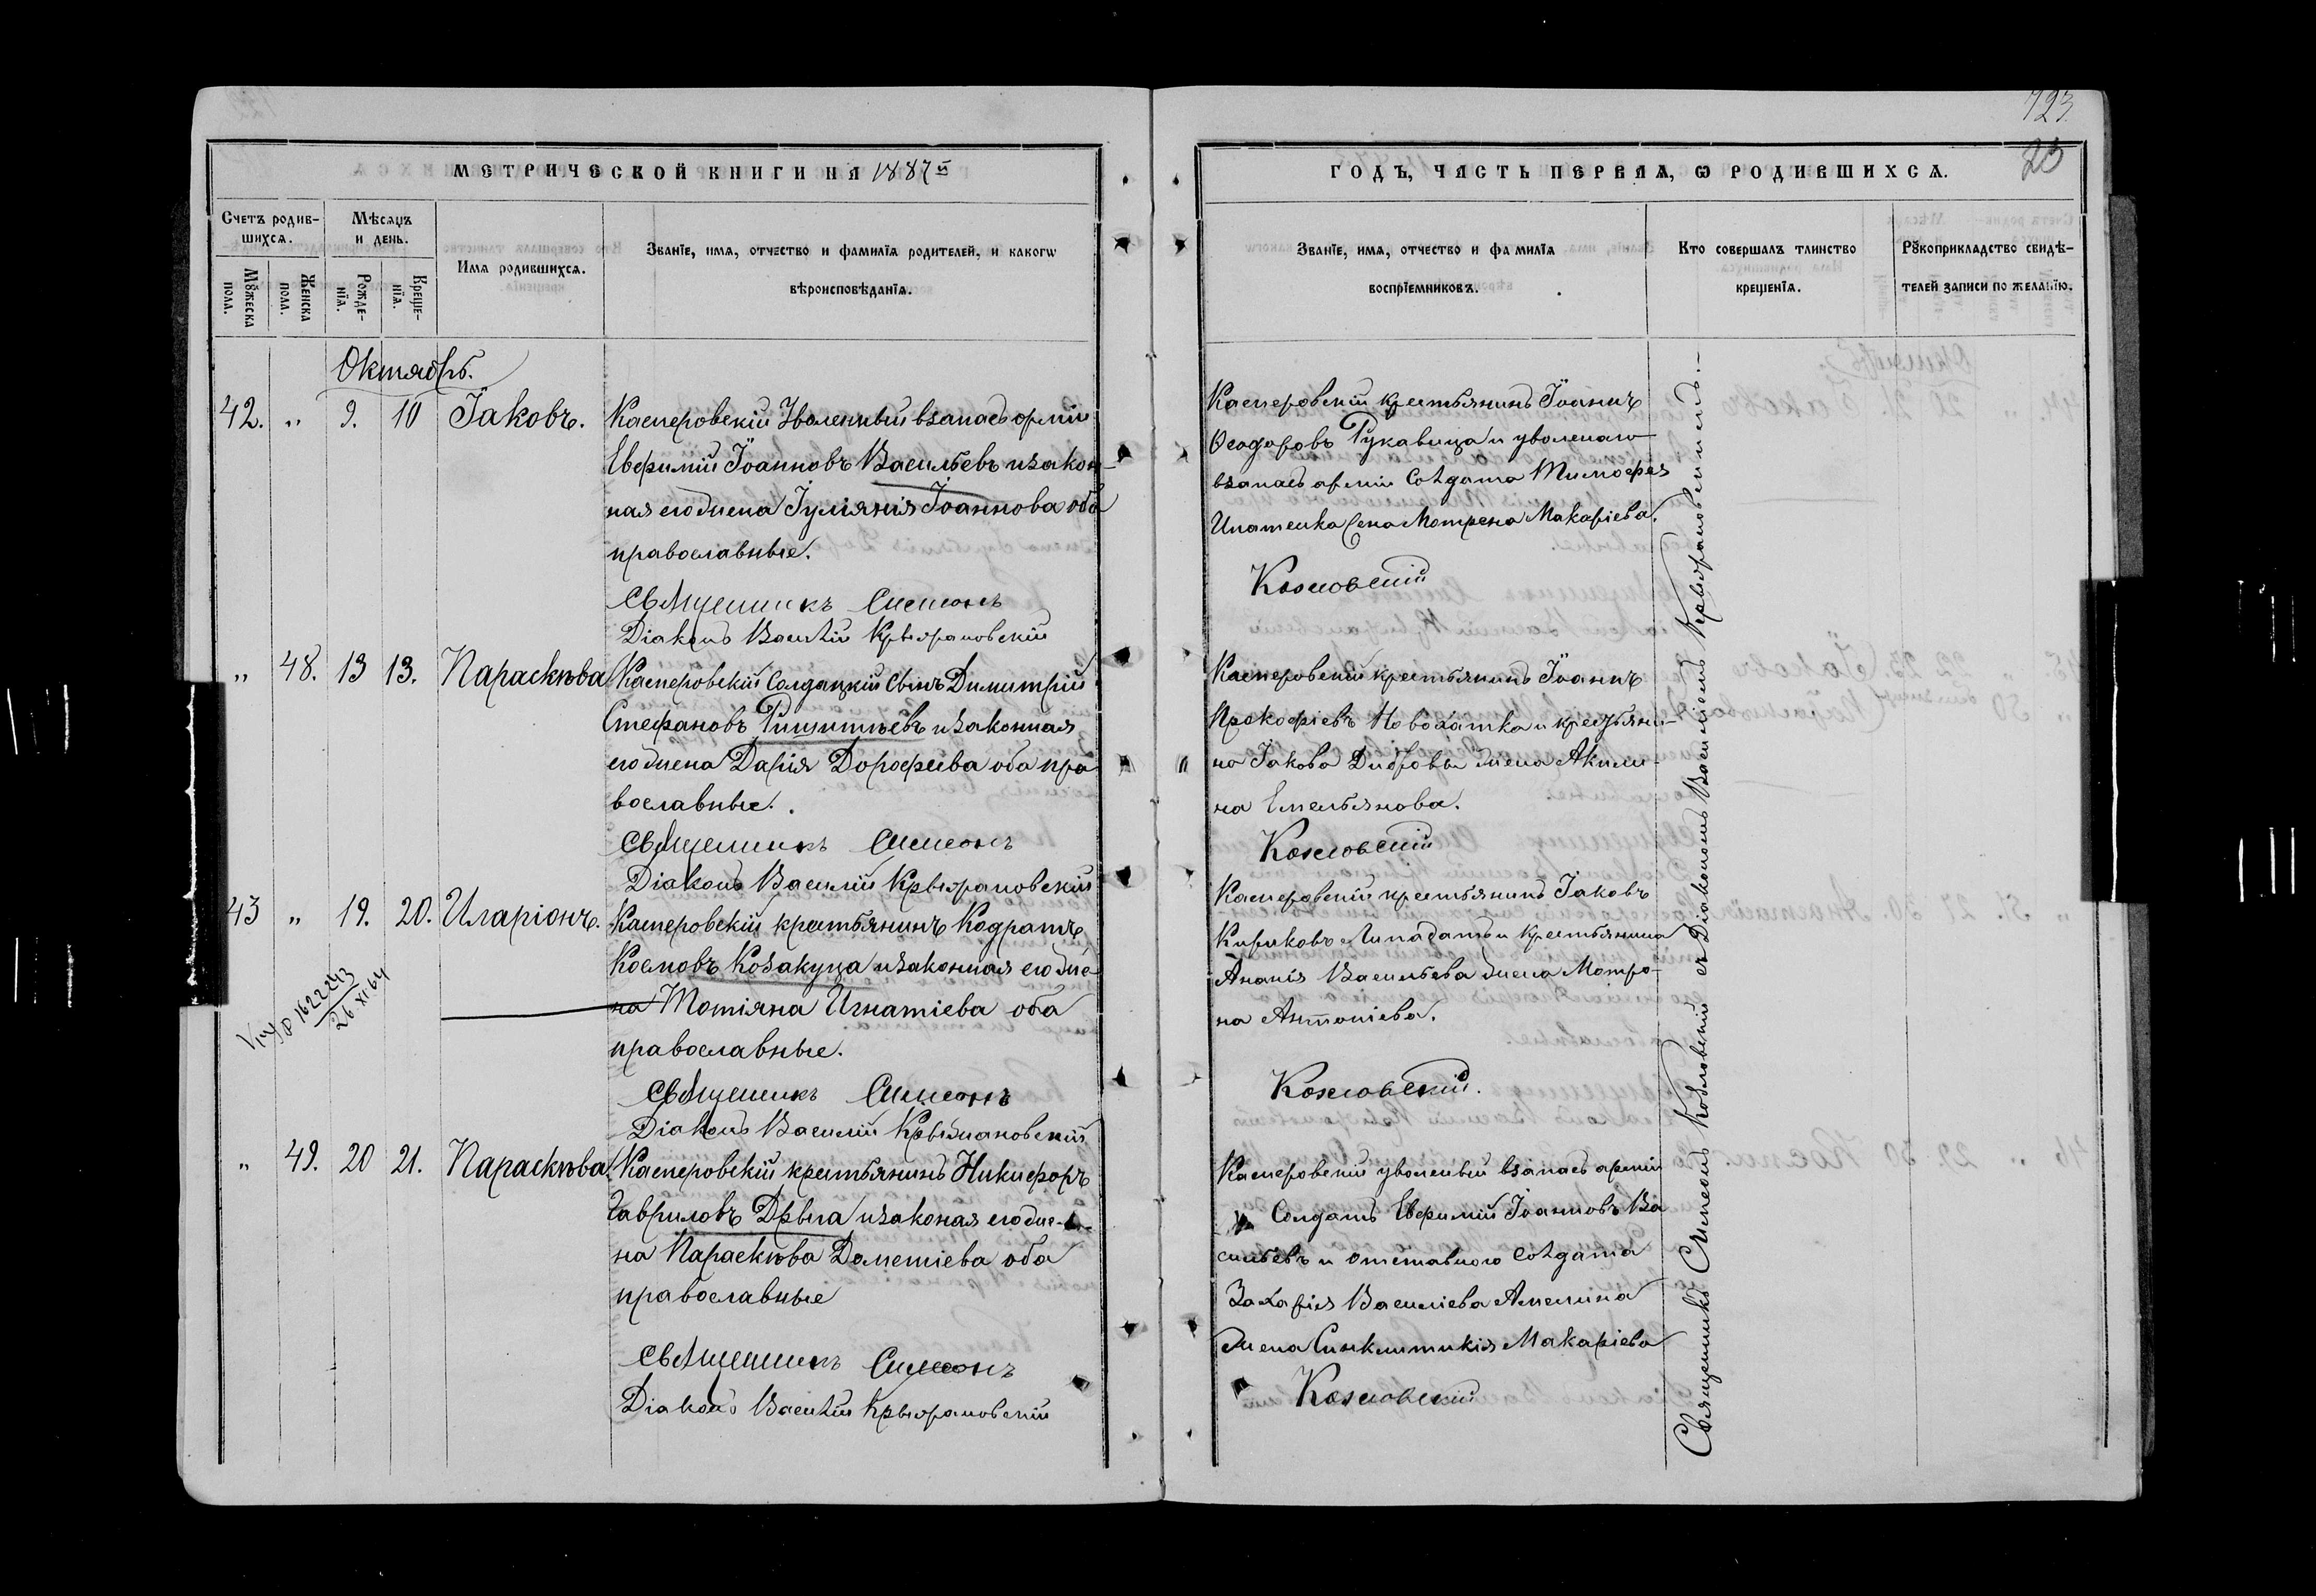 723
23
МЕТРИЧЕСКОЙ КНИГИ НА 1887й
ГОДЪ, ЧАСТЬ ПЕРВАЯ, Ѡ РОДИВШИХСЯ.
Счетъ родив-
шихся.
Мѣсяцъ
и день.
Мꙋжеска
пола.
Женска
пола.
Рожде-
нїя.
Креще-
нїя.
Имя родившихся.
Званїе, имя, отчество и фамилїя родителей, и какогѡ
вѣроисповѣданїя.
Званїе, имя, отчество и фамилїя
воспрїемниковъ.
Кто совершалъ таинство
крещенїя.
Рꙋкоприкладство свидѣ-
телей записи по желанїю.
Октябрь.
42. „ 9. 10 Їаковъ.
Касперовскій Уволенный взапасъ арміи
Евфимій Їоанновъ Васильевъ и закон-
ная его жена Їулїянія Їоаннова оба
православные.
Священникъ Симеонъ
Діаконъ Василій
Касперовскій крестьянинъ Їоаннъ
Ѳеодоровъ Рукавица и уволенаго
взапасъ арміи Солдата Тимофея
Ипатенка жена Мотрена Макаріева.
Козловскій
„ 48. 13 13. Параскѣва
Касперовскій Солдацкій Сынъ Димитрій
Стефановъ и законная
его жена Дарія Дорофеева оба пра
вославные.
Священникъ Симеонъ
Діаконъ Василій
Касперовскій крестьянинъ Їоаннъ
Прокофіевъ Новохатка и крестьяни-
на Їакова Дибровы жена Акили-
на Емельянова.
Козловскій
43 „ 19. 20. Иларіонъ.
Касперовскій крестьянинъ Кодратъ
Космовъ Козакуца и законная его же-
на Тотіяна Игнатіева оба
православные.
Священникъ Симеонъ
Діаконъ Василій
Касперовскій крестьянинъ Їаковъ
Кириковъ Липадатъ и крестьянина
Ананія Васильева жена Мотро-
на Антоніева.
Козловскій.
1622243
26 XI 64
„ 49. 20 21. Параскѣва
Касперовскій крестьянинъ Никифоръ
Гавриловъ Дрыга и законая его же-
на Параскѣва Дометіева оба
православные
Священникъ Симеонъ
Діаконъ Василій
Касперовскій уволеный взапасъ арміи
Солдатъ Евфимій Їоанновъ Ва
сильевъ и отставного Солдата
Захарія Василіева Амелина
жена Синклитикія Макаріева
Козловскій
Священникъ Симеонъ Козловскій съ Діакономъ Василіемъ